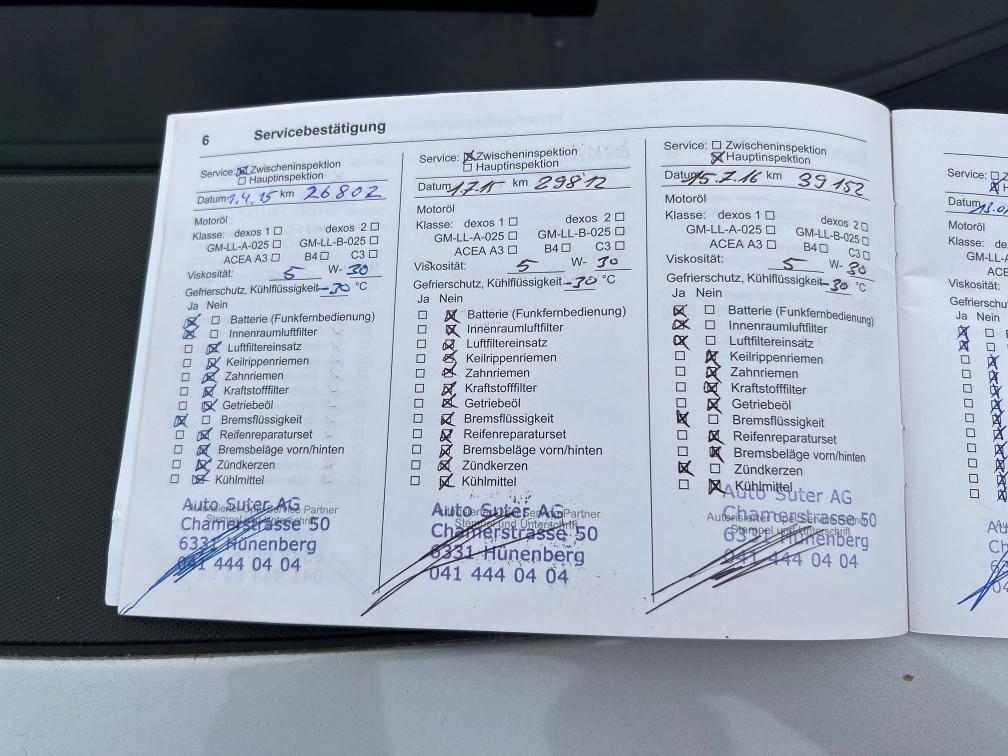 6 Servicebestätigung
Service: Zwischeninspektion
Hauptinspektion
Datum 1.4.15 km 26802
Motoröl
Klasse: dexos 1 dexos 2
GM-LL-A-025 GM-LL-B-025
ACEA A3 B4 C3
Viskosität: 5 W-30
Gefrierschutz, Kühlflüssigkeit -30 °C
Ja Nein
Batterie (Funkfernbedienung)
Innenraumluftfilter
Luftfiltereinsatz
Keilrippenriemen
Zahnriemen
Kraftstofffilter
Getriebeöl
Bremsflüssigkeit
Reifenreparaturset
Bremsbeläge vorn/hinten
Zündkerzen
Kühlmittel
Auto Suter AG
Autorisierter Opel Service Partner
Stempel und Unterschrift
Chamerstrasse 50
6331 Hünenberg
041 444 04 04
Service: Zwischeninspektion
Hauptinspektion
Datum km 29812
Motoröl
Klasse: dexos 1 dexos 2
GM-LL-A-025 GM-LL-B-025
ACEA A3 B4 C3
Viskosität: 5 W-30
Gefrierschutz, Kühlflüssigkeit -30 °C
Ja Nein
Batterie (Funkfernbedienung)
Innenraumluftfilter
Luftfiltereinsatz
Keilrippenriemen
Zahnriemen
Kraftstofffilter
Getriebeöl
Bremsflüssigkeit
Reifenreparaturset
Bremsbeläge vorn/hinten
Zündkerzen
Kühlmittel
Auto Suter AG
Autorisierter Opel Service Partner
Stempel und Unterschrift
Chamerstrasse 50
6331 Hünenberg
041 444 04 04
Service: Zwischeninspektion
Hauptinspektion
Datum 15.7.16 km 39152
Motoröl
Klasse: dexos 1 dexos 2
GM-LL-A-025 GM-LL-B-025
ACEA A3 B4 C3
Viskosität: 5 W-30
Gefrierschutz, Kühlflüssigkeit -30 °C
Ja Nein
Batterie (Funkfernbedienung)
Innenraumluftfilter
Luftfiltereinsatz
Keilrippenriemen
Zahnriemen
Kraftstofffilter
Getriebeöl
Bremsflüssigkeit
Reifenreparaturset
Bremsbeläge vorn/hinten
Zündkerzen
Kühlmittel
Auto Suter AG
Autorisierter Opel Service
Stempel und Unterschrift
Chamerstrasse 50
6331 Hünenberg
041 444 04 04
Service:
Datum
Motoröl
Klasse:
Viskosität:
Ja Nein